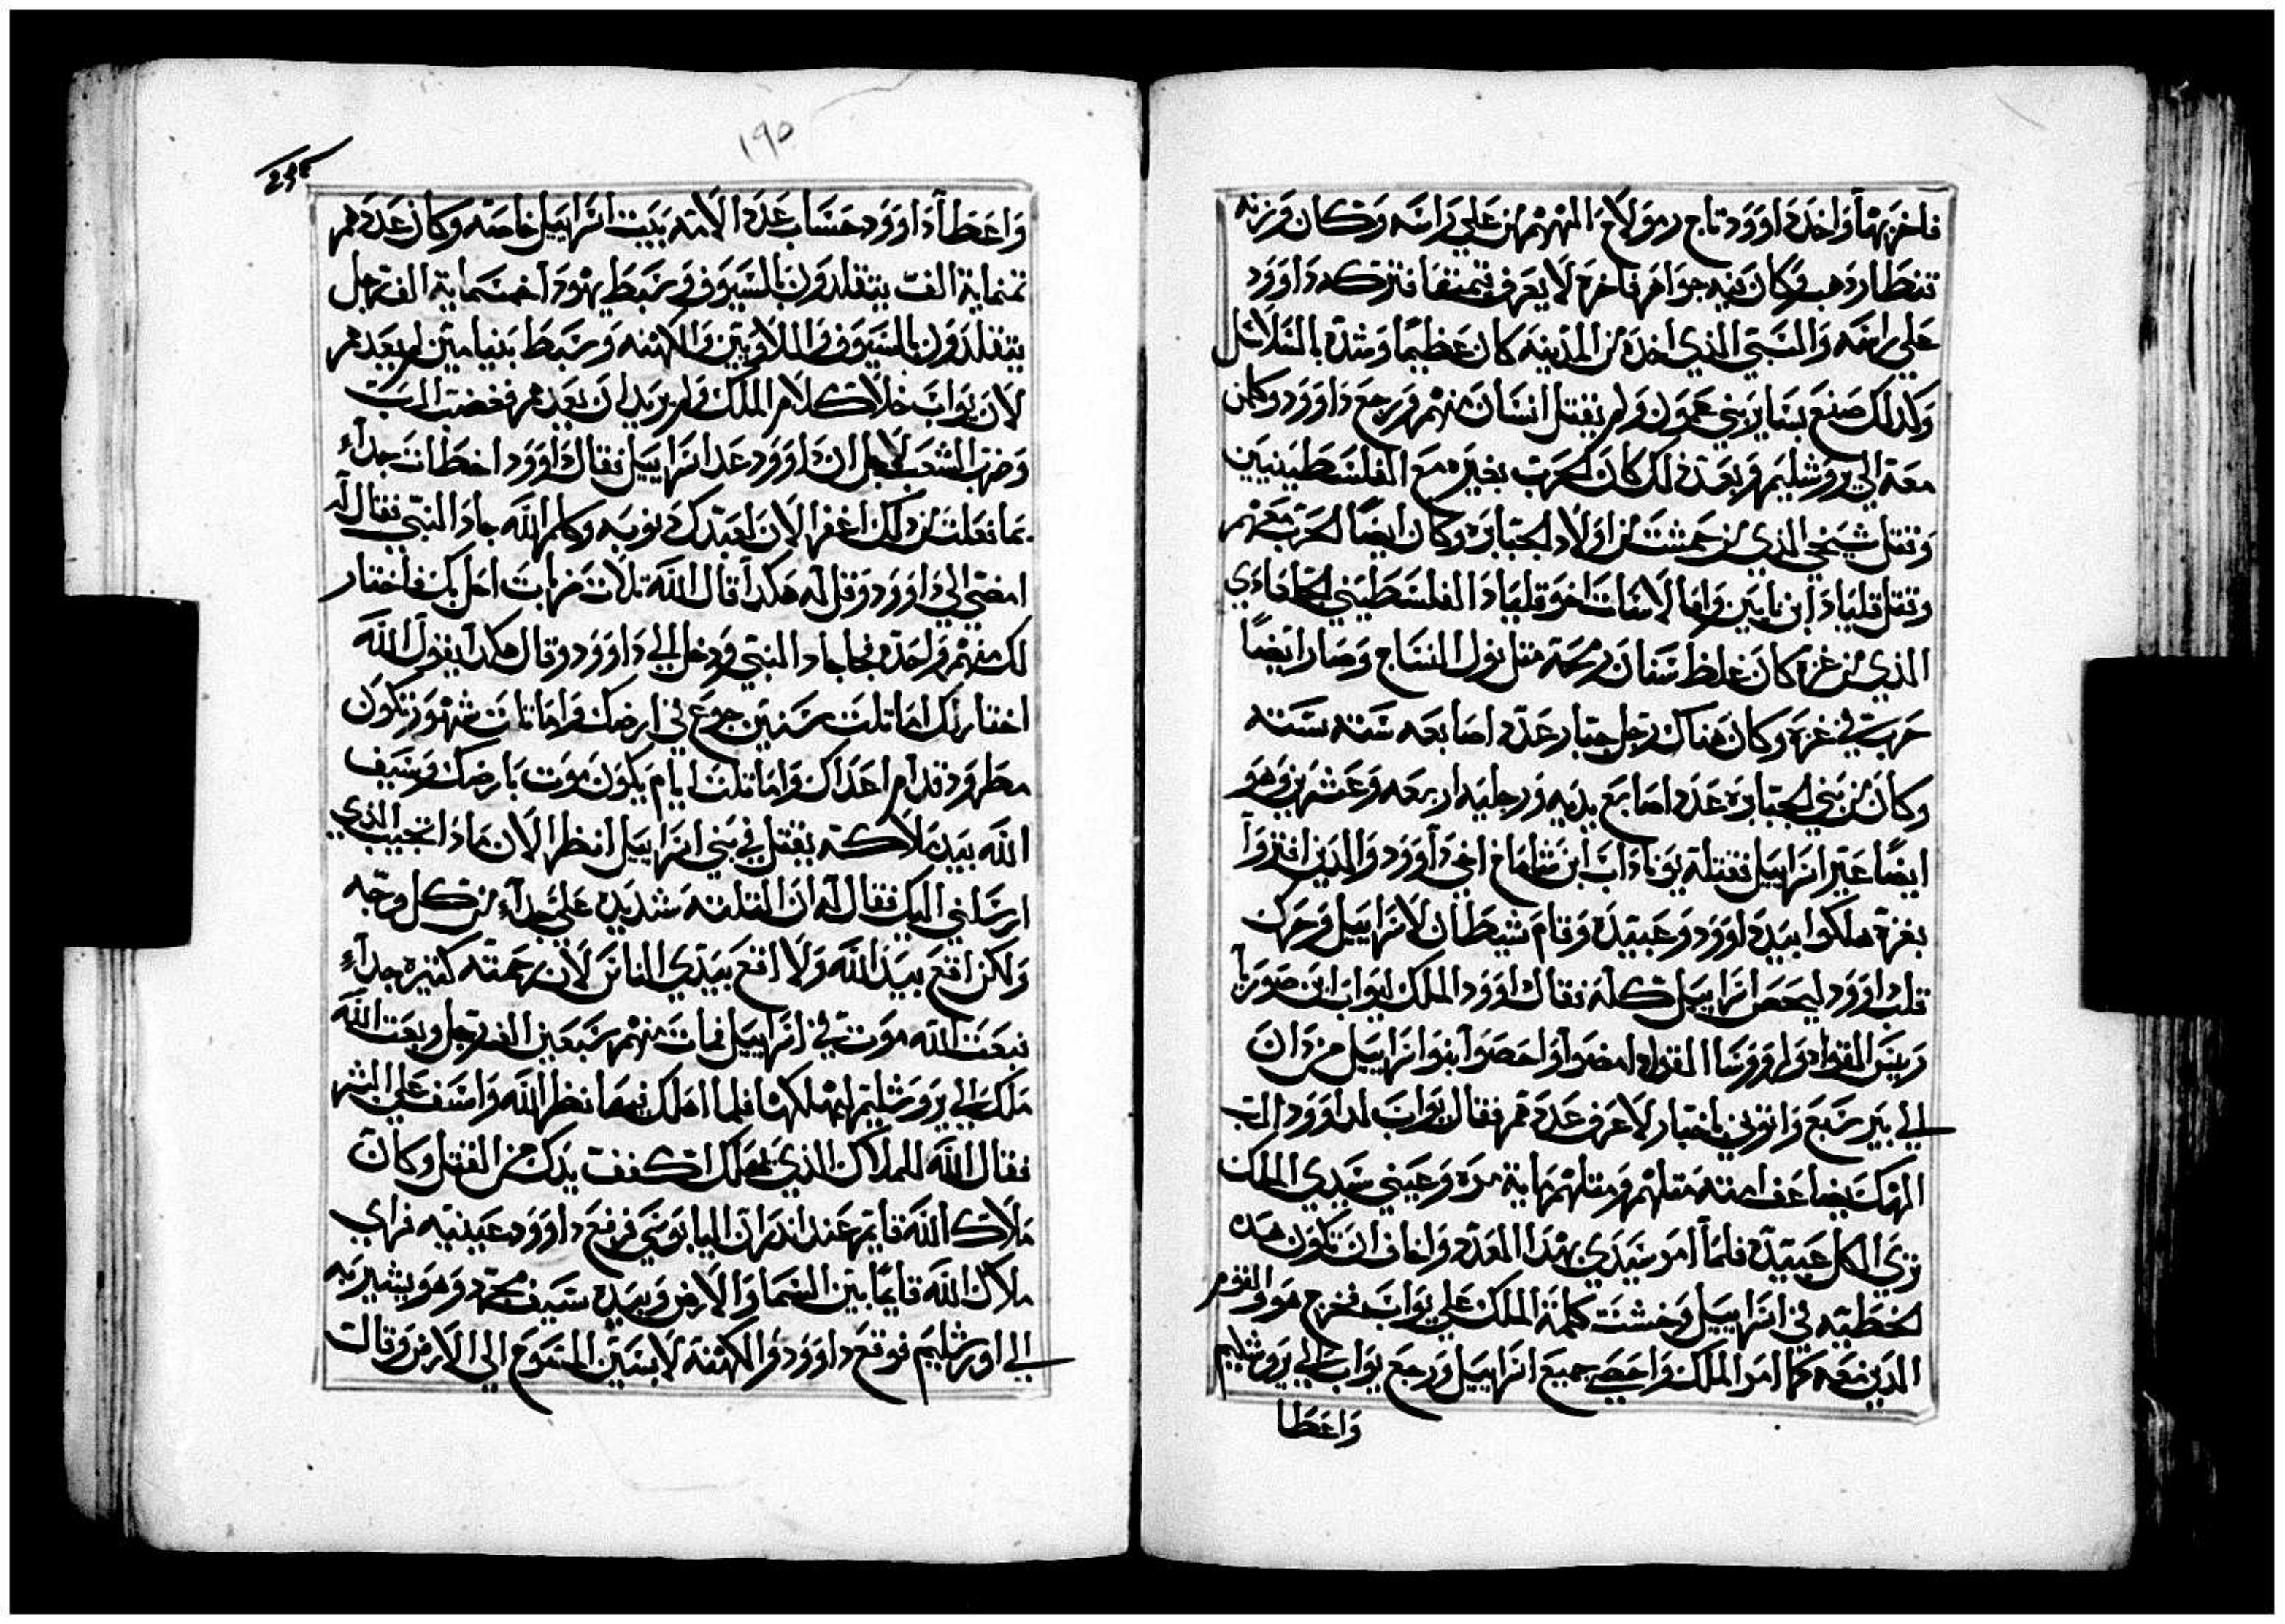 فاخربها واخد داوود تاج رمولاخ المهم من علي راسه وكان وزنه
قنطار دهب وكان فيه جواهر فاخره لا يعرف قيمتها فتركه داوود
علي راسه والسبي الذي اخده من المدينه كان عظيما وشده بالسلاسل
وكدلك صنع بساير بني عمون ولم يفتل انسان منهم ورجع داوود وكلمن
معه الي يروشليم وبعد دلك كان الحرب بغيزه مع الفلسطينيين
وقتل شيمخي الذي من حمشت من اولاد الجبابره وكان ايضا الحرب معهم
وقتل قلياد ابن نايين واما لاسات اخو قلياد الفلسطيني الجاماداي
الذي من غزه كان غلظ سنان رمحه متل نول النساج وصار ايضا
حرب في غزه وكان هناك رجل جبار عدد اصابعه سته سته
وكان من بني الجبابره عدد اصابع يديه ورجليه اربعه وعشرين وهو
ايضا عير اسراييل فقتله يوناداب ابن شاماخ اخي داوود والدين افتروا
بغزه هلكوا بيد داوود وعبيده وقام شيطان لاسراييل وحرك
قلب داوود ليحصي اسراييل كله فقال داوود الملك ليواب ابن صوريا
رييس القواد ولرووسا القواد امضوا واحصوا بنوا اسراييل من دان
الي بير سبع واتوني باختبار لاعرف عددهم فقال يواب لداوود الرب
الهك يضاعف امته متلهم ومتلهم ماية مره وعيني سيدي الملك
تري الكل عبيده فلما امر سيدي بهدا العدد واخاف ان تكون هده
لخطيه في اسراييل وخشنت كلمة الملك علي يواب فخرج هو والقوم
الدين معه كما امر الملك واحصي جميع اسراييل ورجع يواب الي يروشليم
واعطا
١٩٥
واعطا داوود حساب عدد الامه ببيت اسراييل خاصته وكان عددهم
تمنماية الف يتقلدون بالسيوف وسبط يهودا خمسماية الف رجل
يتقلدون بالسيوف والملاويين والكهنه وسبط بنيامين لم يعدهم
لان يواب خلا كلام الملك ولم يريد ان يعدهم فغضب الرب
وضرب الشعب لاجل ان داوود عد اسراييل فقال داوود اخطات جدا
بما فعلت من دلك اغفر الان لعبدك دنوبه وكلم الله جاد النبي فقال له
امضي الي داوود وقل له هكدا قال الله تلات ضربات احل بك فاختار
لك منهم واحده فجا جاد النبي ودخل الي داوود وقال هكدا يقول الله
اختار لك اما تلت سنين جوع في ارضك واما تلت شهور تكون
مطرود قدام اعداك واما تلت ايام يكون موت بارضك وسيف
الله بيد ملاكه يقتل في بني اسراييل انظر الان مادا تجيب الذي
ارسلني اليك فقال له ان التلته شديده علي جدا من كل وجه
ولكن اقع بيد الله ولا اقع بيدي الناس لان رحمته كتيره جدا
فبعت الله موت في اسراييل فمات منهم سبعين الف رجل وبعت الله
ملك الي يروشليم ليهلكها فلما اهلك فيها نظر الله واسف علي الشر
فقال الله للملاك الذي يهلك اكفف يدك من القتل وكان
ملاك الله قايم عند اندر ارن اليابوسي فرفع داوود عينيه فراي
ملاك الله قايما بين السما والارض وبيده سيف مجرد وهو يشير به
الي اورشليم فوقع داوود والكهنه لابسين المسوح الي الارض وقال